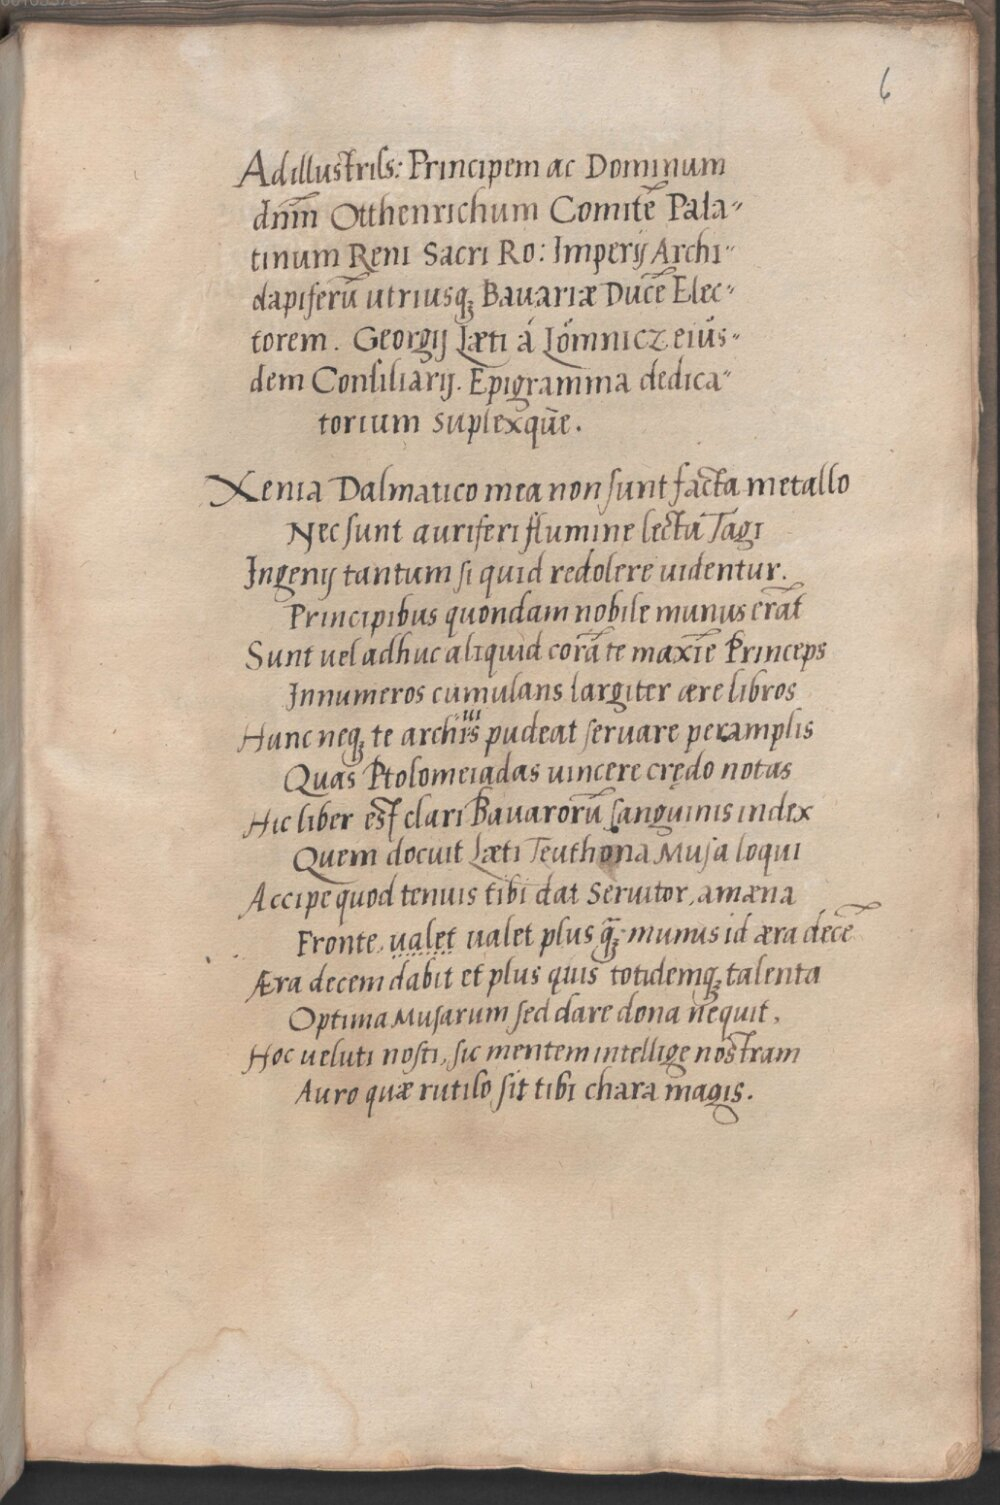 6
Ad illustriss: Principem ac Dominum
dn̄m Otthenrichum Comitē Pala-
tinum Reni Sacri Ro: Imperij Archi-
dapiferū utriusqꝫ Bavariæ Ducē Elec-
torem. Georgij Læti á Lömnicz eiůs-
dem Consiliarij. Epigramma dedica-
torium suplexqūe.
Xenia Dalmatico mea non sunt facta metallo
Nec sunt auriferi flumine lecta Tagi
Ingenij tantum si quid redolere uidentur.
Principibus quondam nobile munus erāt
Sunt uel adhuc aliquid corā te maxīe Princeps
Innumeros cumulans largiter ære libros
Hunc neqꝫ te archiis pudeat seruare peramplis
Quas Ptolomeiadas uincere crędo notas
Hic liber est clari Bavarorū sanguinis index
Quem docuit Læti Teuthona Musa loqui
Accipe quod tenuis tibi dat Seruitor, amæna
Fronte, ualet ualet plus q̄ꝫ munus id æra decē
Æra decem dabit et plus quis totidemqꝫ talenta
Optima Musarum sed dare dona nequit,
Hoc ueluti nosti, sic mentem intellige nostram
Auro quæ rutilo sit tibi chara magis.